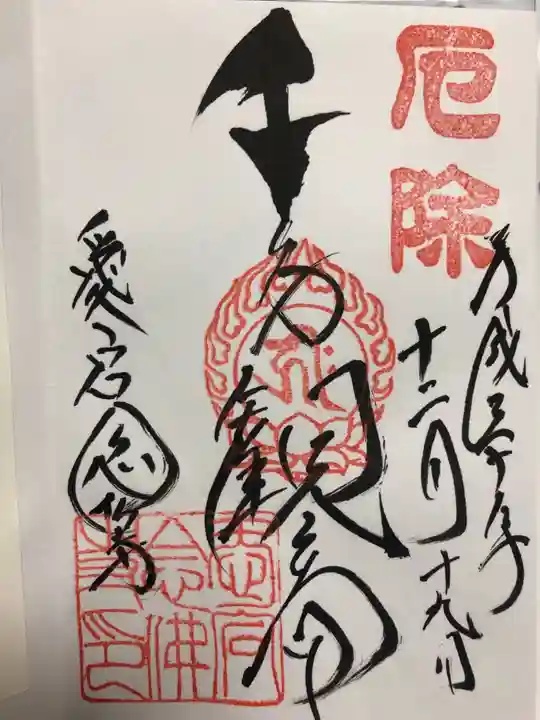 厄除
平成三十年
十二月十九日
千手観音
愛宕念佛寺
愛宕
念佛
寺印